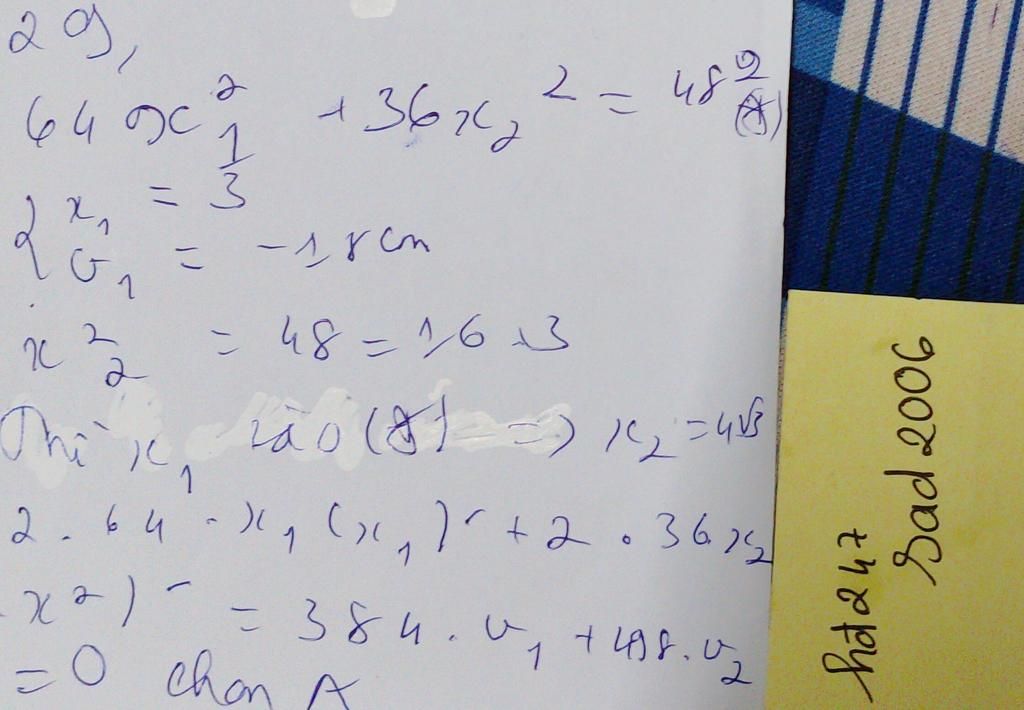 29,
64x₁² + 36x₂² = 48² (*)
{ x₁ = 3
v₁ = -18 cm
x₂² = 48 = 16.3
Thế x₁ vào (*) => x₂ = 4√3
2.64.x₁(x₁)' + 2.36x₂
x²)' = 384.v₁ + 498.v₂
= 0 chọn A
hot247
Sad2006